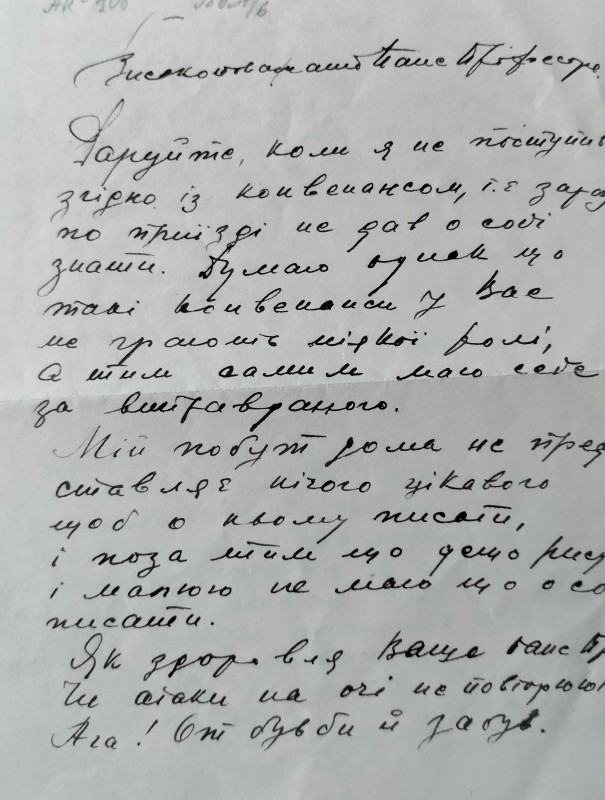 Високоповажаний Пане Професоре.
Даруйте, коли я не поступив
згідно із конвенансом, і. є зараз
по приїзді не дав о собі
знати. Думаю однак що
такі конвенанси у Вас
не грають ніякої ролі,
а тим самим маю себе
за виправданого.
Мій побут дома не пред
ставляє нічого цікавого
щоб о ньому писати,
і поза тим що дещо рису
і малюю не маю що о со
писати.
Як здоровля Ваше Пане Пр
Чи атаки на очі не повторюют
Ага! От був би й забув.